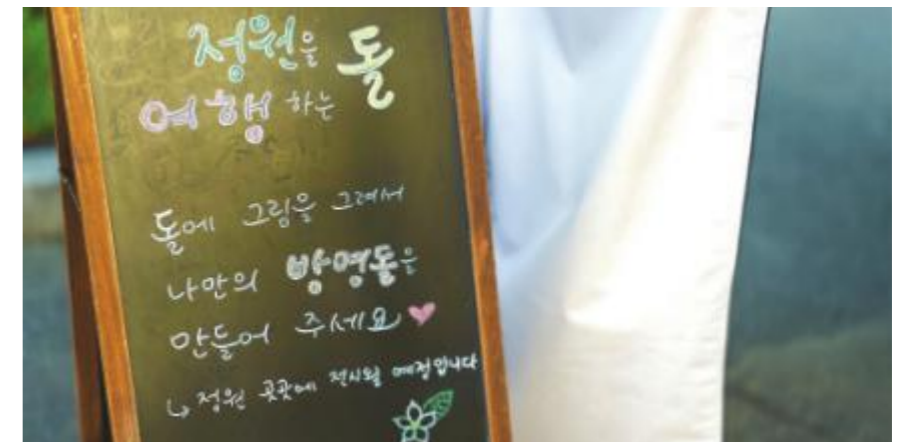 정원을 돌
여행하는
돌에 그림을 그려서
나만의 방명돌을
만들어 주세요
↳ 정원 곳곳에 전시될 예정입니다